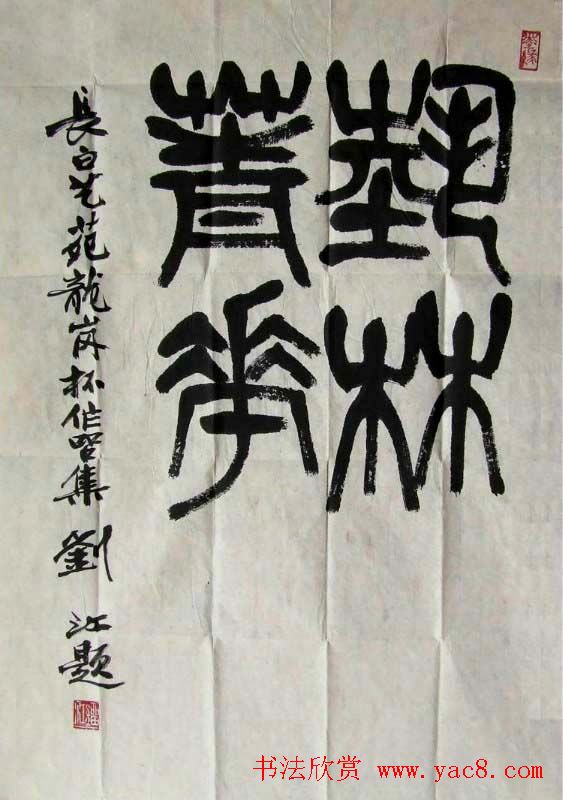 埶林
菁華
長白艺苑龍岗杯作品集 劉江题
书法欣赏 www.yac8.com